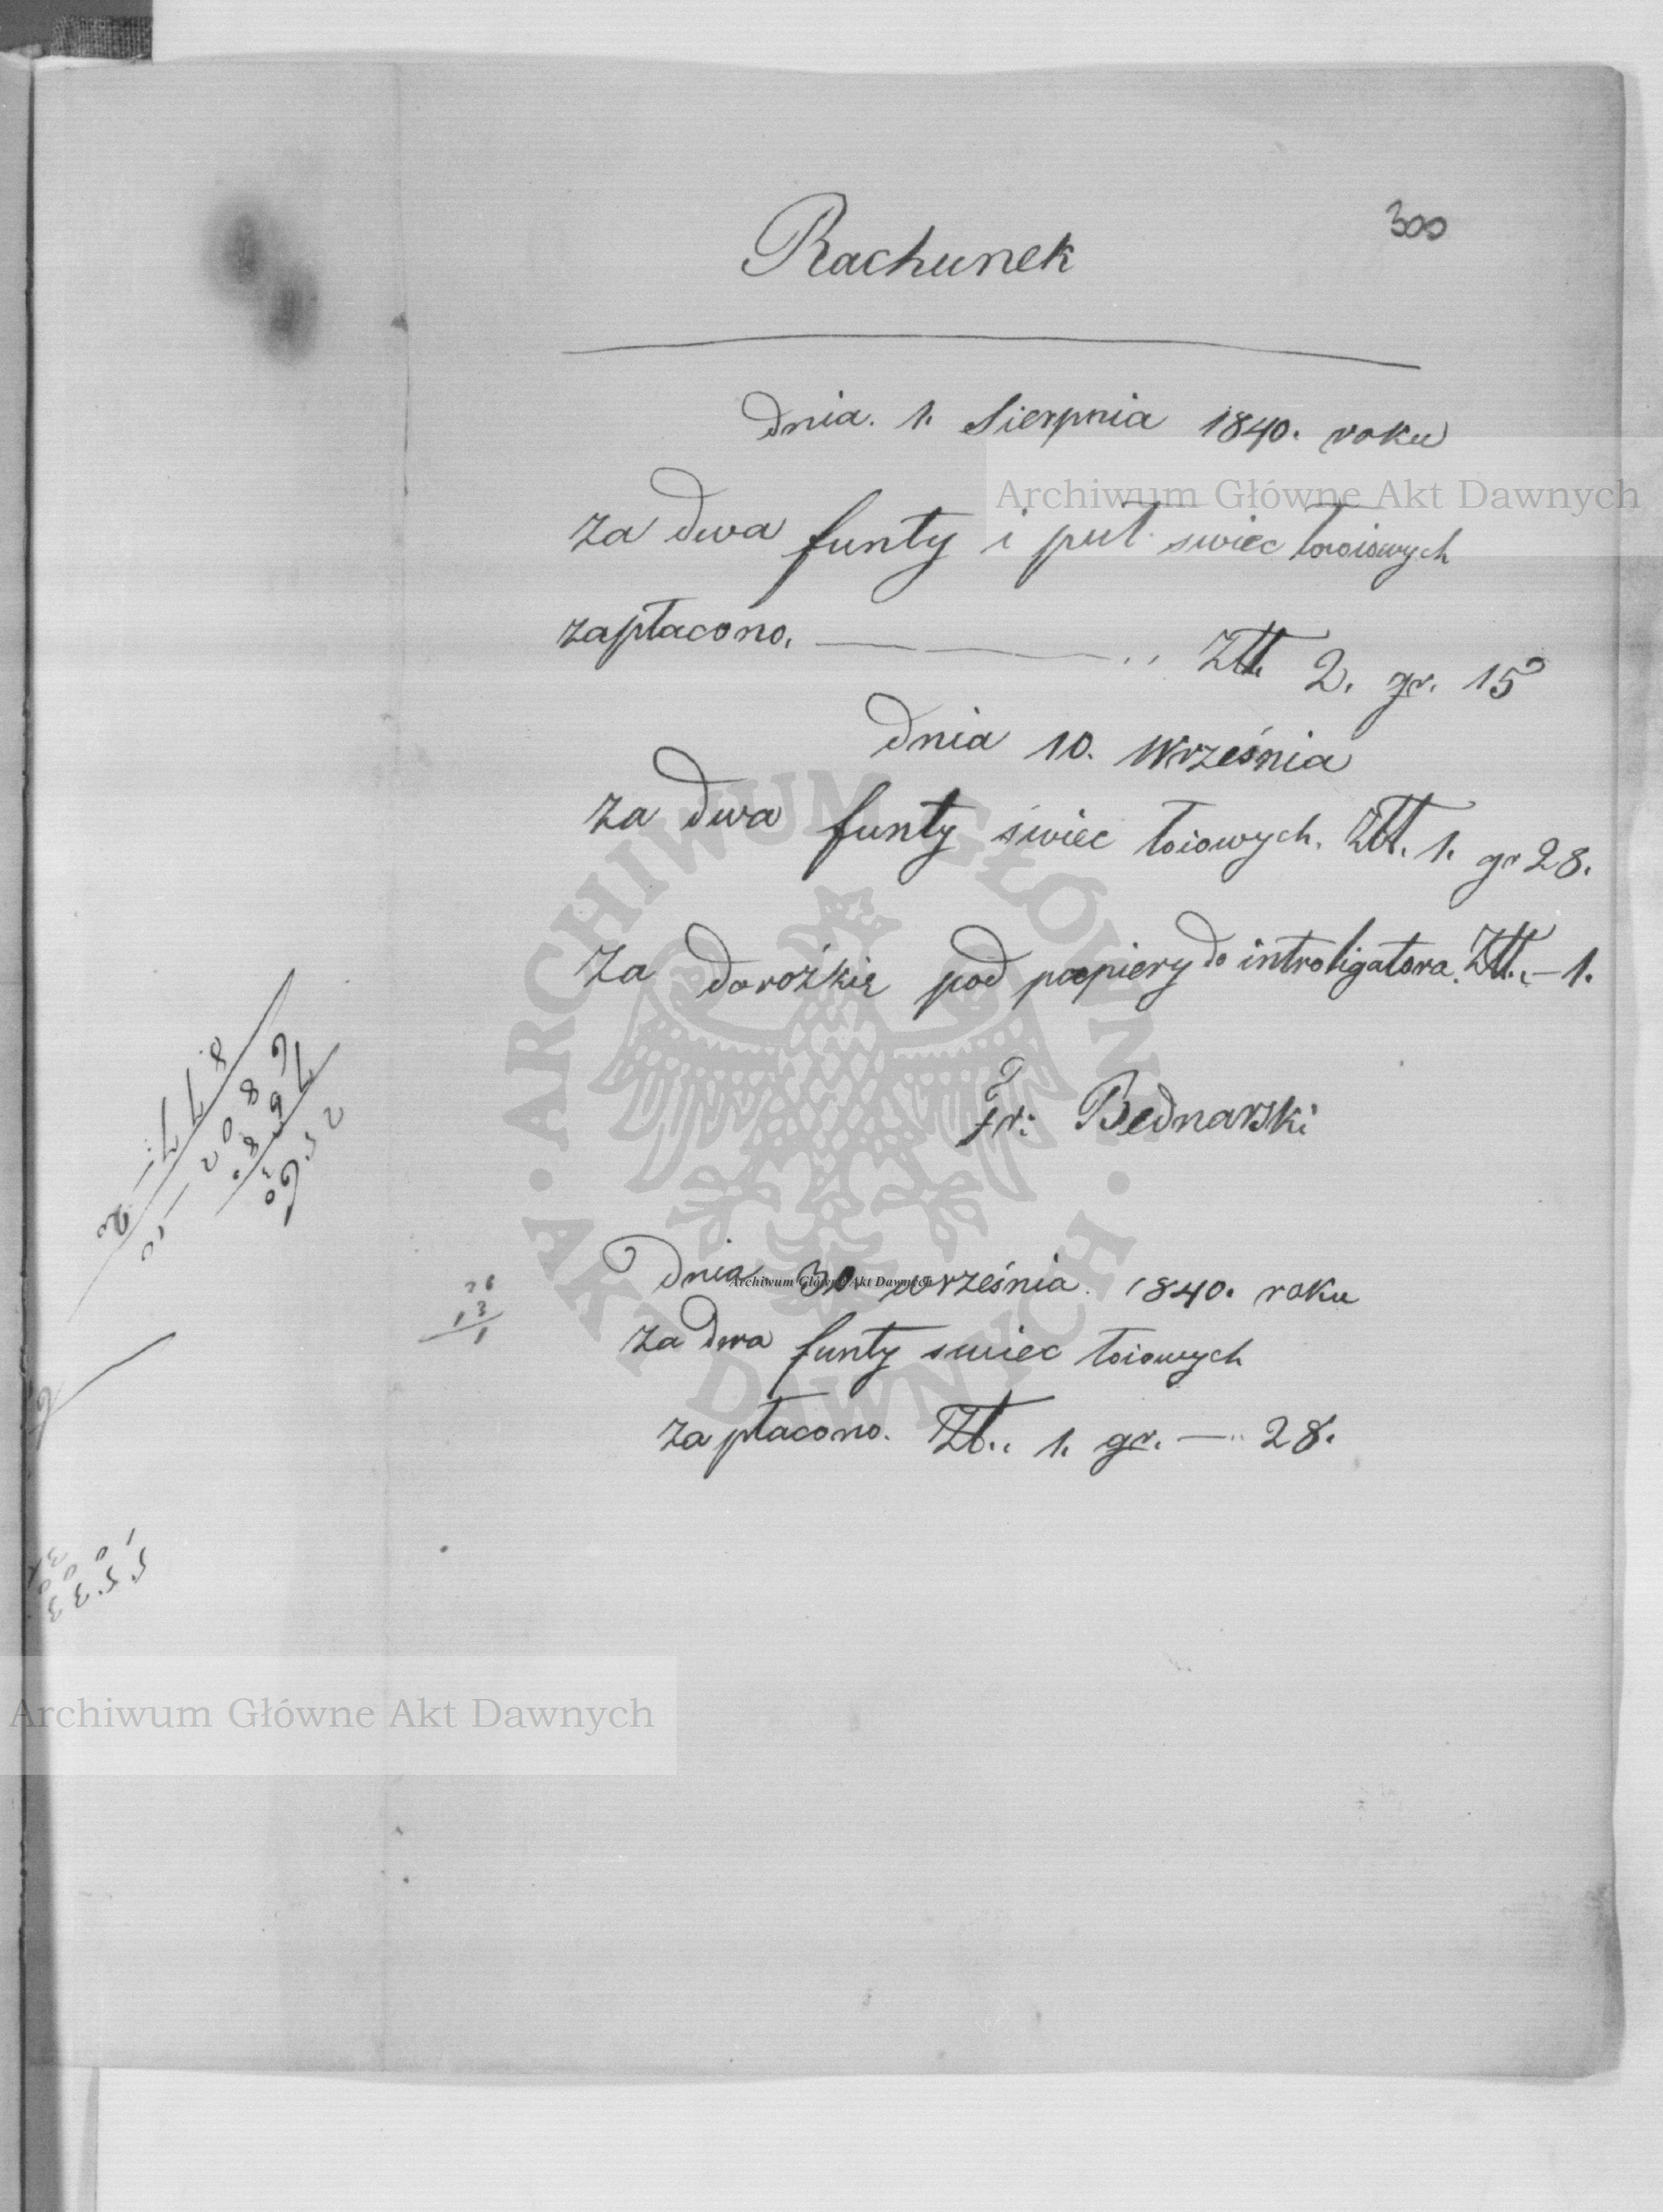 300
Rachunek
dnia. 1. Sierpnia 1840. roku
za dwa funty i puł swiec łoiowych
zapłacono. Złł. 2. gr. 15
dnia 10. Września
za dwa funty swiec łoiowych. Złł. 1. gr 28.
za dorożkię pod papiery do introligatora. Złł. — 1.
Fr: Bednarski
Dnia 30 września. 1840. roku
za dwa funty swiec łoiowych
zapłacono. Zł.. 1. gr. — 28.
Archiwum Główne Akt Dawnych
Archiwum Główne Akt Dawnych
Archiwum Główne Akt Dawnych
ARCHIWUM GŁÓWNE • AKT DAWNYCH •